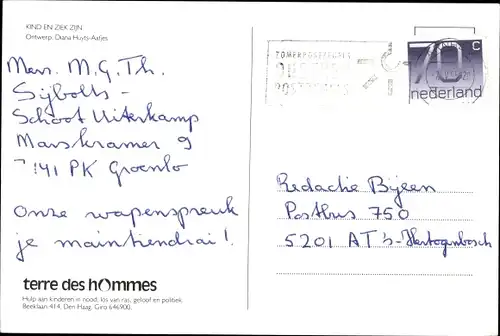 KIND EN ZIEK ZIJN
Ontwerp: Diana Huyts-Aafjes
Mevr. M.G.Th.
Sijbolts -
Schoot Uiterkamp
Marskramer 9
7141 PK Groenlo
Onze wapenspreuk
je maintiendrai!
terre des hommes
Hulp aan kinderen in nood, los van ras, geloof en politiek.
Beeklaan 414, Den Haag. Giro 646900.
ZOMERPOSTZEGELS
70 c
nederland
Redactie Bijeen
Postbus 750
5201 AT 's-Hertogenbosch